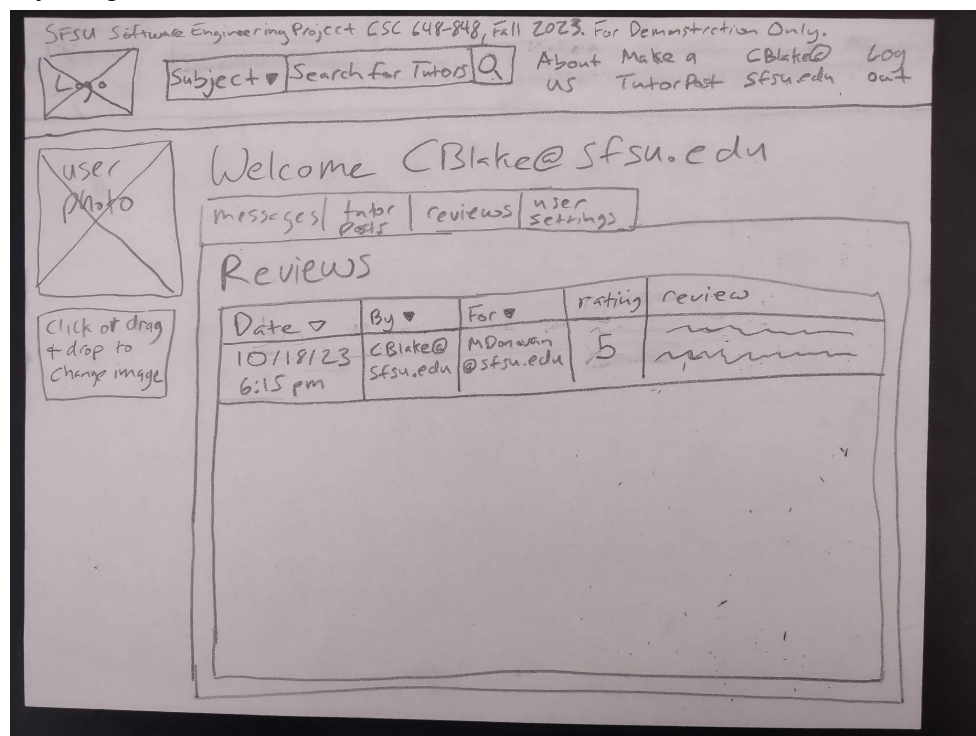 SFSU Software Engineering Project CSC 648-848, Fall 2023. For Demonstration Only.
Logo
Subject Search for Tutors
About Us
Make a Tutor Post
CBlake@ sfsu.edu
Log out
user photo
Click or drag
+ drop to
Change image
Welcome CBlake@sfsu.edu
messages tutor posts reviews user settings
Reviews
Date By For rating review
10/18/23 6:15 pm
CBlake@ sfsu.edu
MDonovan @sfsu.edu
5